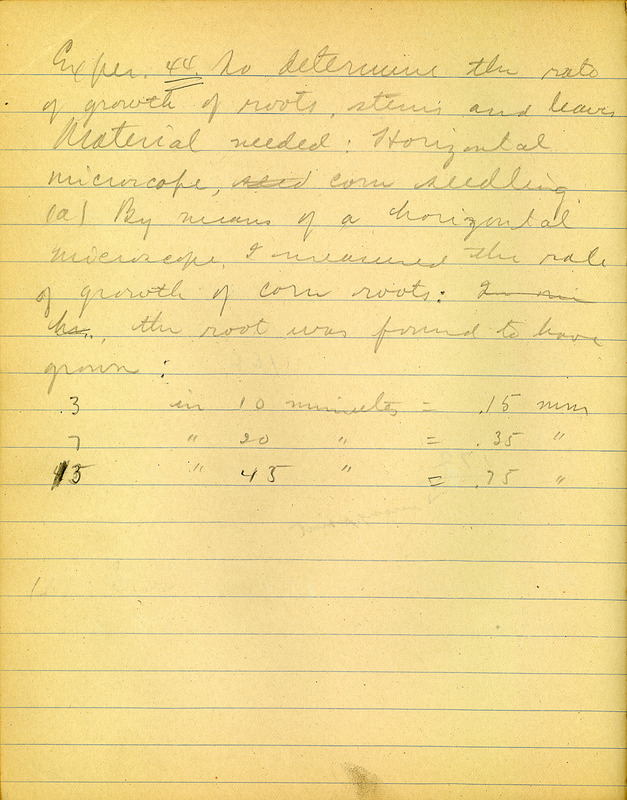 Exper. 44. To determine the rate
of growth of roots, stems and leaves
Material needed: Horizontal
microscope, seed corn seedling.
(a) By means of a horizontal
microscope, I measured the rate
of growth of corn roots: In one
hr., the root was found to have
grown:
.3 in 10 minutes = .15 mm
7 " 20 " = .35 "
15 " 45 " = .75 "